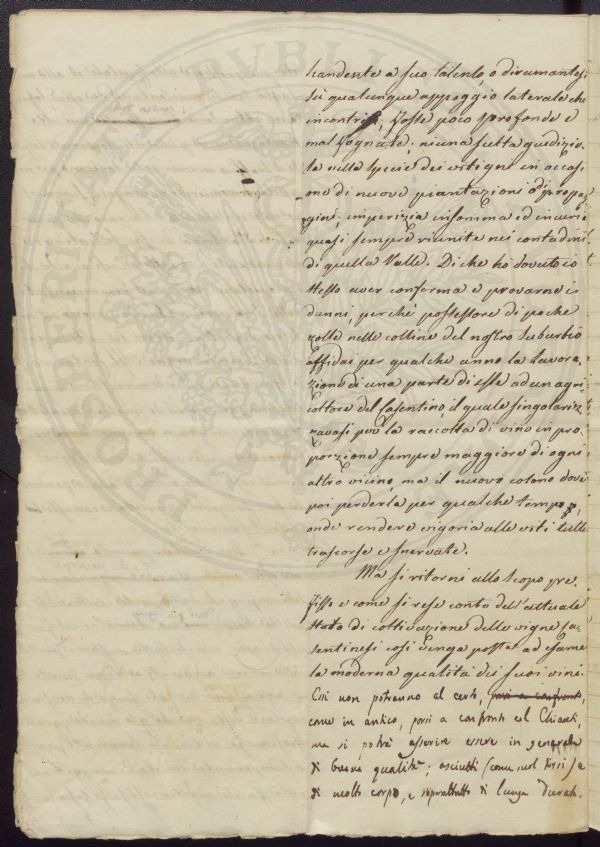 scandente a suo talento, o diramantesi
su qualunque appoggio laterale che
incontri; fosse poco profonde e
mal fognate; niuna scelta giudizio-
sa nella specie dei vitigni in occasi
one di nuove piantazioni o di propag-
gini; imperizia insomma ed incuria
quasi sempre riunite nei contadini
di quella Valle. Di che ho dovuto io
stesso aver conferma e provarne i
danni, perchè possessore di poche
zolle nelle colline del nostro suburbio
affidai per qualche anno la lavora-
zione di una parte di esse ad un agri
coltore del Casentino, il quale singolariz
zavasi per la raccolta di vino in pro
porzione sempre maggiore di ogni
altro vicino, ma il nuovo colono dové
poi perderla per qualche tempo,
onde rendere vigoria alle viti tutte
trascorse e snervate.
Ma si ritorni allo scopo pre
fisso e come si rese conto dell'attuale
stato di coltivazione delle vigne Ca-
sentinesi così venga posta ad esame
la moderna qualità dei suoi vini.
Essi non potranno al certo, porsi a confronto,
come in antico, porsi a confronto col Chianti,
ma si potrà asserire essere in generale
di buona qualità; asciutti (come suol dirsi) e
di molto corpo, e soprattutto di lunga durata.
PVBLI